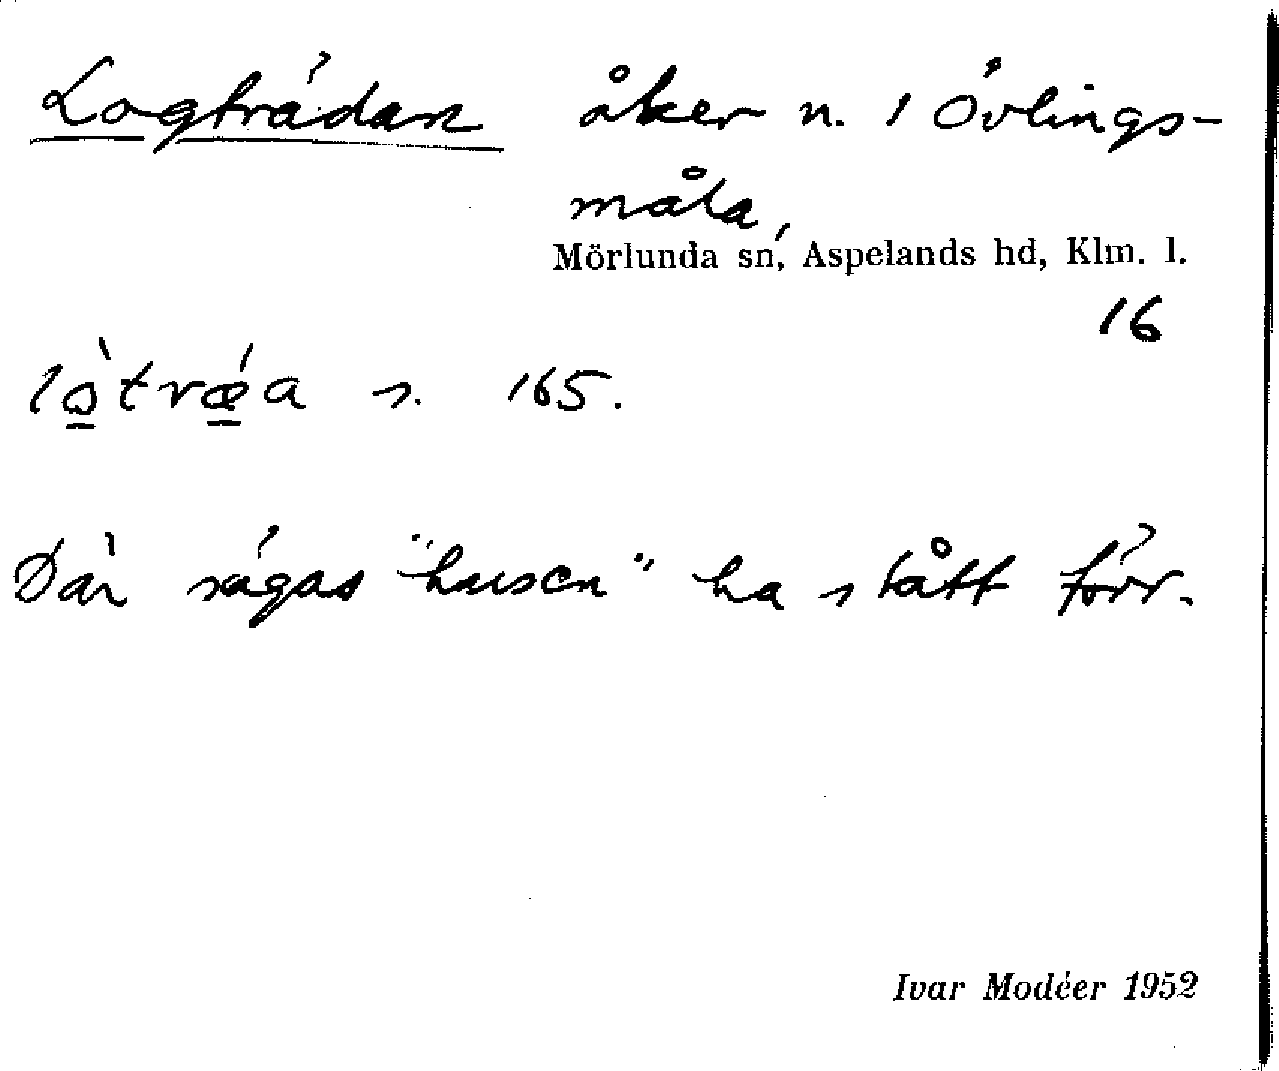 Logträdan åker n. i Övlings-
måla,
Mörlunda sn, Aspelands hd, Klm. l.
16
lò̠trǽ̠a s. 165.
Där sägas "husen" ha stått förr.
Ivar Modéer 1952